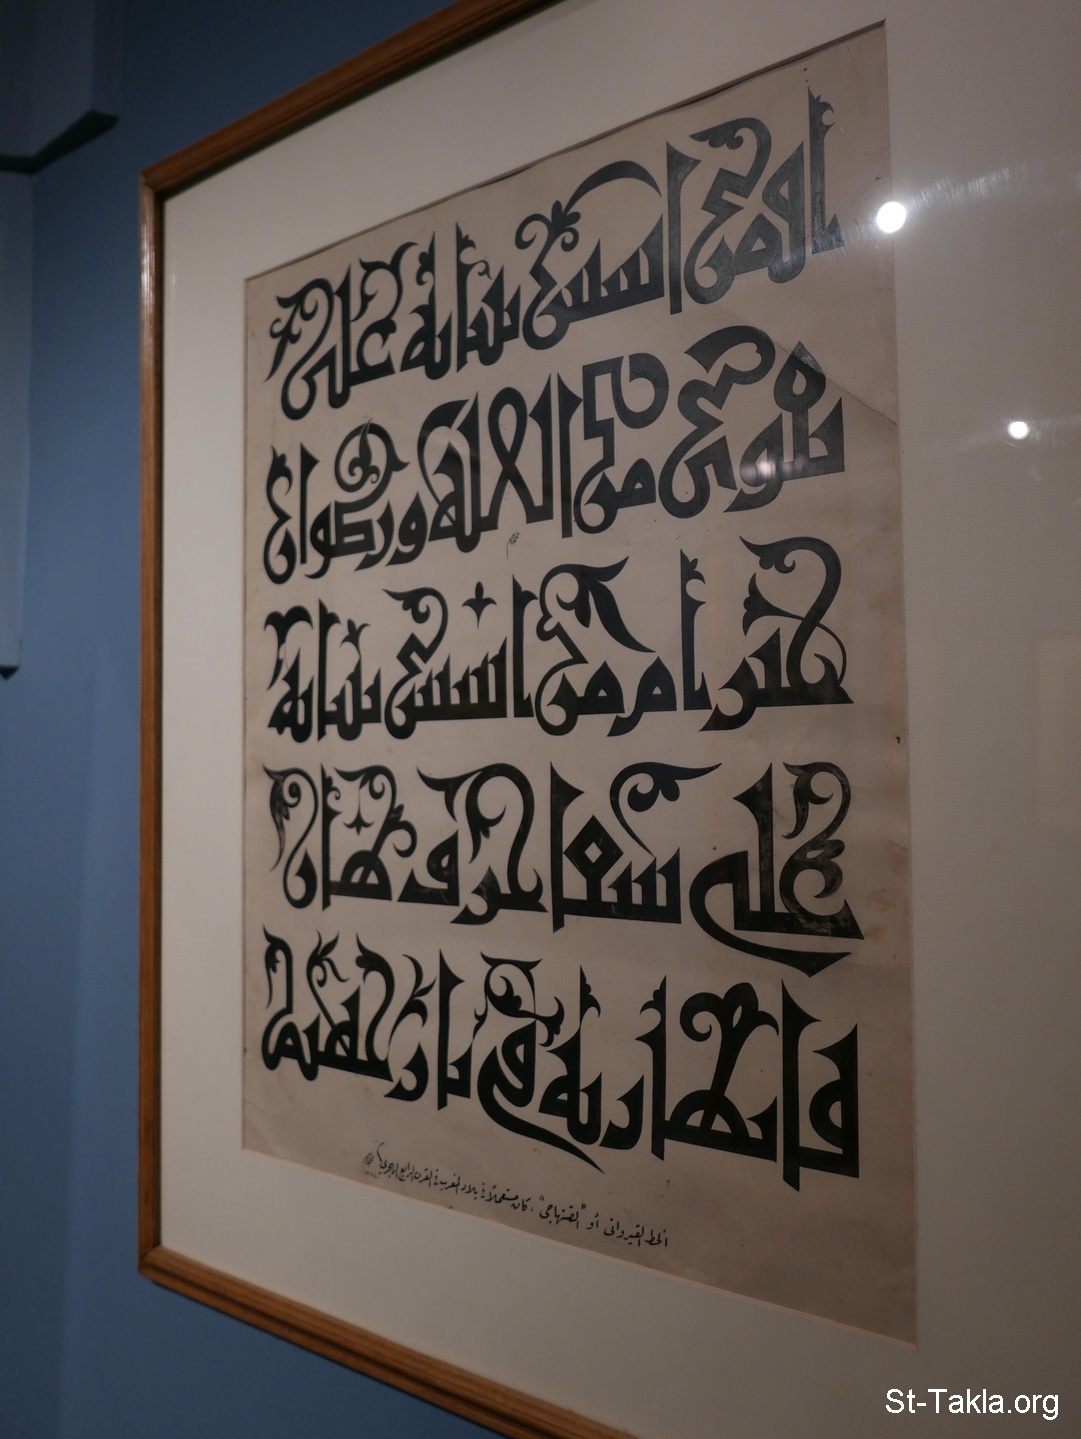 أفمن أسس بنيانه على
تقوى من الله ورضوان
خير أم من أسس بنيانه
على شفا جرف هار
فانهار به في نار جهنم
الخط القيرواني أو "الصنهاجي"، كان مستعملاً في بلاد المغرب في القرن الرابع الهجري
St-Takla.org